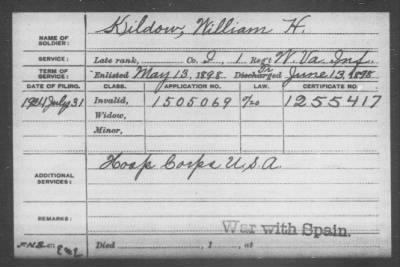 NAME OF SOLDIER: Kildow, William H.
SERVICE: Late rank, Co. I, 1 Reg't W. Va. Inf.
TERM OF SERVICE: Enlisted May 13, 1898. Discharged Tr June 13, 1898.
DATE OF FILING. CLASS. APPLICATION NO. LAW. CERTIFICATE NO.
1924 July 31 Invalid, 1505069 1255417
Widow,
Minor,
ADDITIONAL SERVICES: Hosp Corps U.S.A.
REMARKS:
War with Spain.
Died , 1 , at